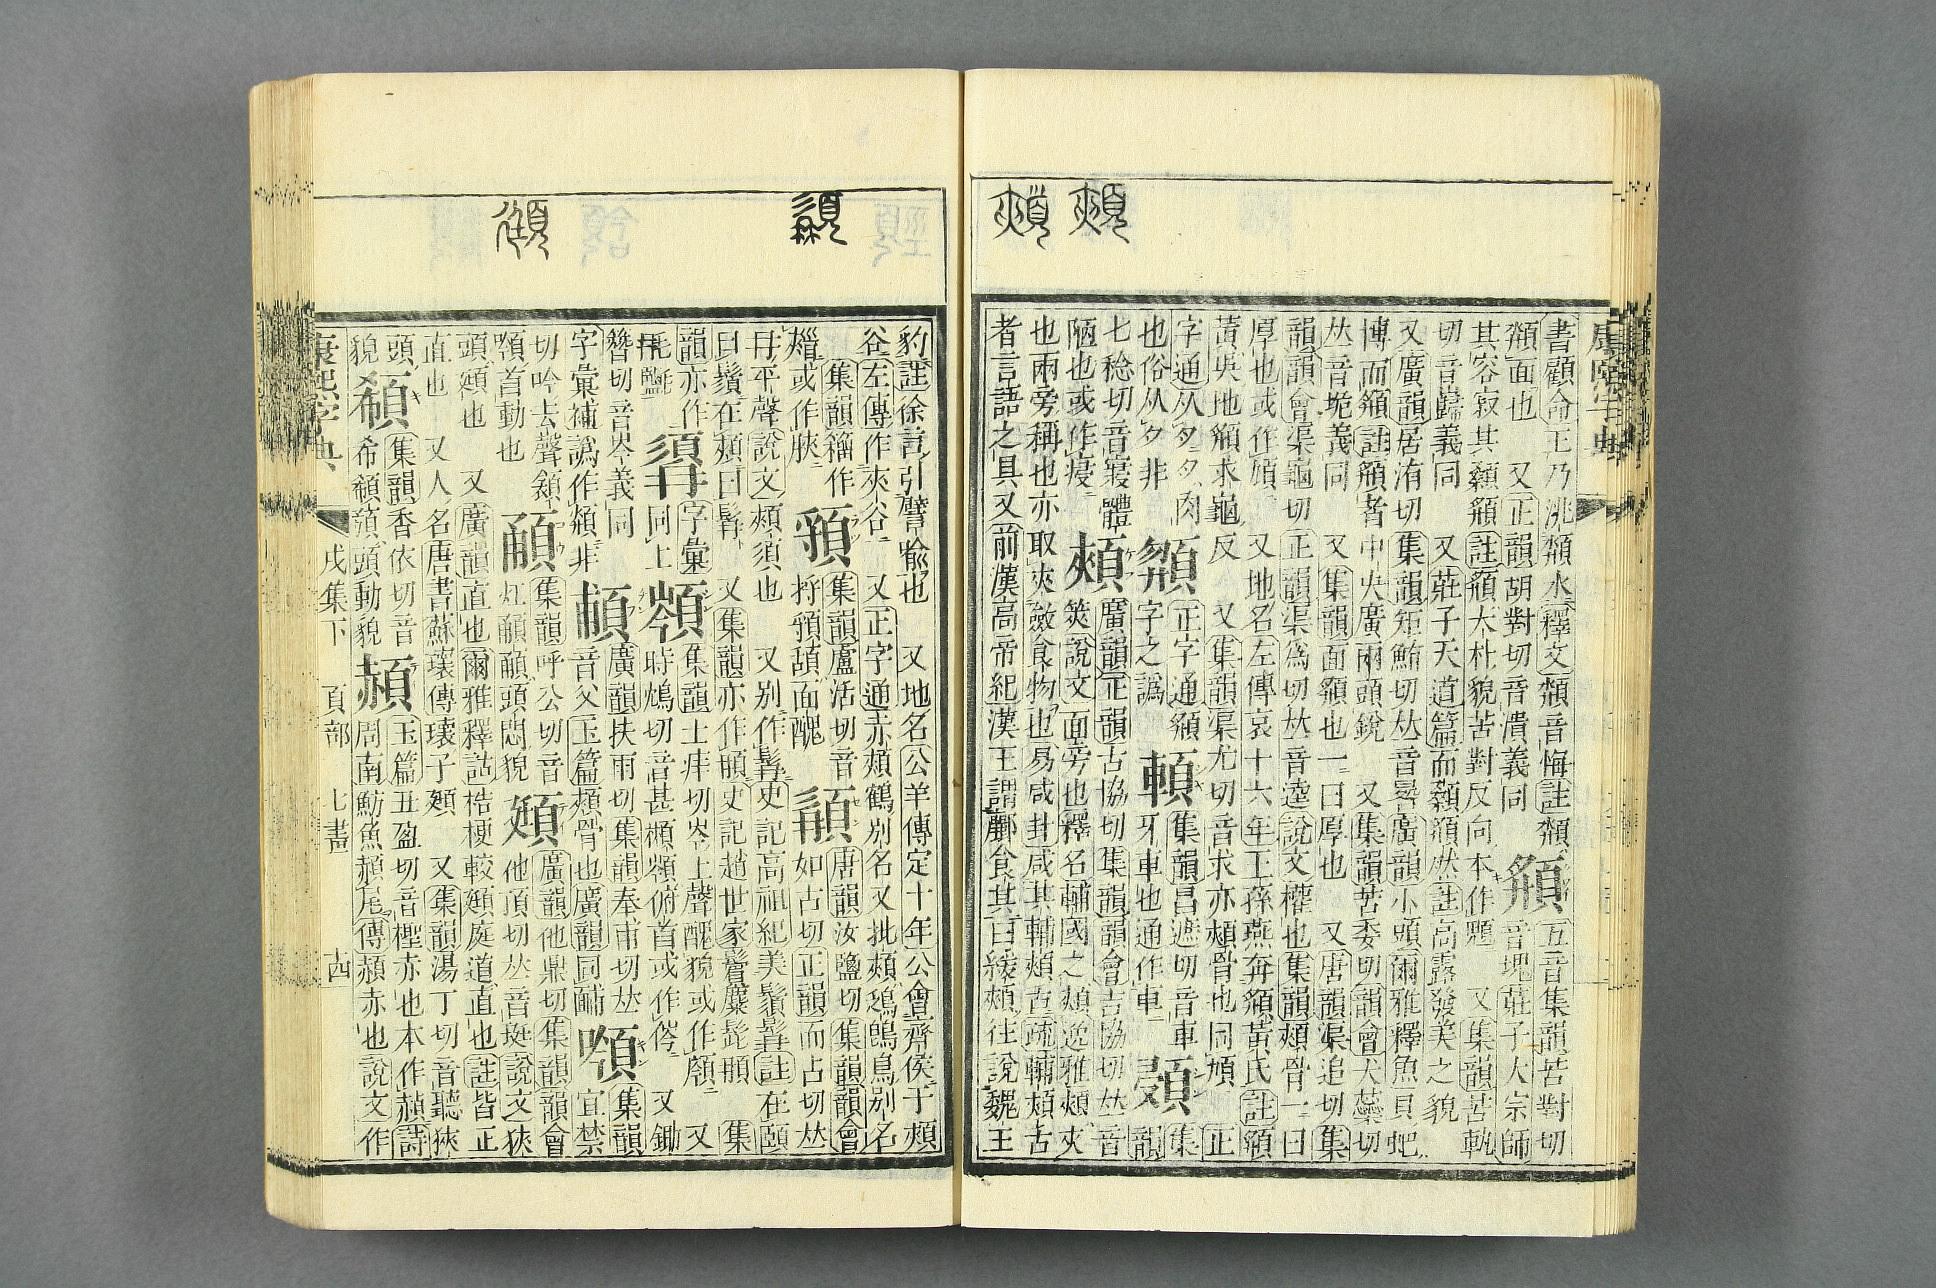 書顧命王乃洮頮水釋文頮音悔註頮
頮面也 又正韻胡對切音潰義同
頯
五音集韻苦對切
音塊莊子大宗師
其容寂其顙頯註頯大朴貌苦對反向本作䫥 又集韻苦軌
切音巋義同 又莊子天道篇而顙頯然註高露發美之貌
又廣韻居洧切集韻矩鮪切𠀤音晷廣韻小頭爾雅釋魚貝蚆
博而頯註頯者中央廣兩頭銳 又集韻苦委切韻會犬蘂切
𠀤音跪義同 又集韻面頯也一曰厚也 又唐韻渠追切集
韻韻會渠龜切正韻渠爲切𠀤音逵說文權也集韻頰骨一曰
厚也或作頄 又地名左傳哀十六年王孫燕奔頯黃氏註頯
黃吳地頯求龜反 又集韻渠尤切音求亦頰骨也同頄 正
字通从夕夕肉
也俗从夕非
正字通頯
字之譌
集韻昌遮切音車
牙車也通作車
集
韻
七稔切音寢體
陋也或作
頰
廣韻正韻古協切集韻韻會吉協切𠀤音
筴說文面旁也釋名輔國之頰逸雅頰夾
也兩旁稱也亦取夾斂食物也易咸卦咸其輔頰舌疏輔頰舌
者言語之具又前漢高帝紀漢王謂酈食其曰緩頰往說魏王
豹註徐言引譬喻也 又地名公羊傳定十年公會齊侯于頰
谷左傳作夾谷 又正字通赤頰鶴別名又批頰鵶鴶鳥別名
集韻籀作
或作脥
集韻盧活切音
捋頟面醜
䫇
唐韻汝鹽切集韻韻會
如占切正韻而占切𠀤
平聲說文頰須也 又別作髥史記高祖紀美鬚髥註在頤
曰鬚在頰曰髥 又集韻亦作䫇史記趙世家鬢麋髭䫇 集
韻亦作
字彙
同上
集韻士痒切岑上聲醜貌或作顩 又
時鴆切音甚頫頷俯首或作倰 又鋤
簪切音岑義同
字彙補譌作頫非
䩉
廣韻扶雨切集韻奉甫切𠀤
音父玉篇頰骨也廣韻同䩉
集韻
宜禁
切吟去聲
首動也
集韻呼公切音
頭悶貌
頲
廣韻他鼎切集韻韻會
他頂切𠀤音珽說文狹
頭頲也 又廣韻直也爾雅釋詁梏梗較頲庭道直也註皆正
直也 又人名唐書蘇瓌傳瓌子頲 又集韻湯丁切音聽狹
頭
貌
集韻香依切音
希頭動貌
䞓
玉篇丑盈切音檉赤也本作赬詩
周南魴魚赬尾傳赬赤也說文作
康熙字典
戌集下 頁部 七畫
十四